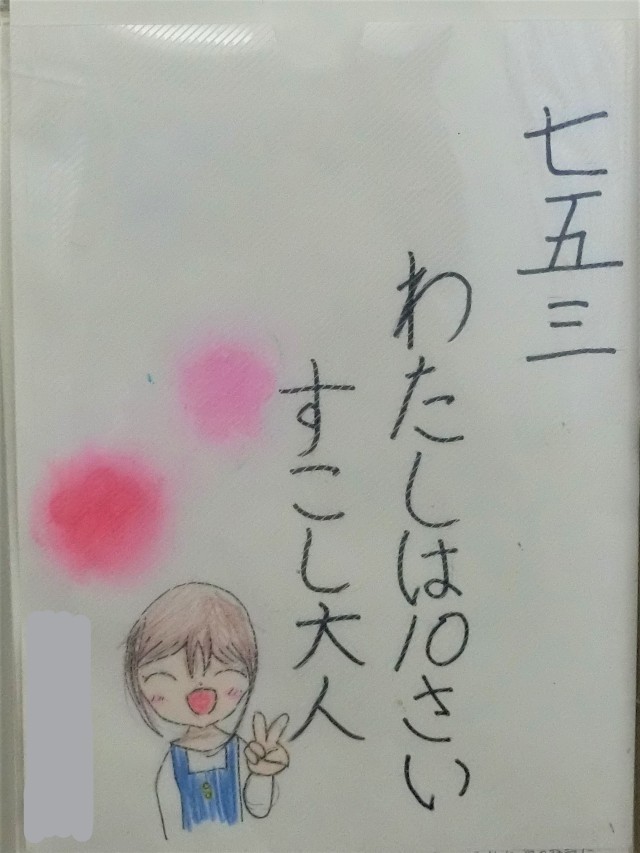 七五三
わたしは10さい
すこし大人